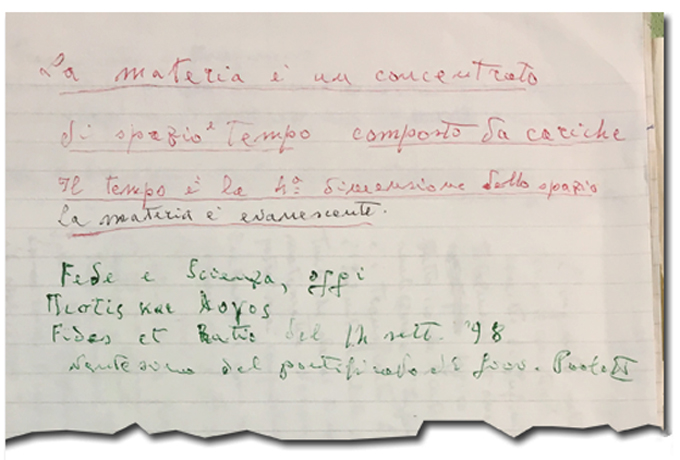 La materia è un concentrato
di spazio e Tempo composto da cariche
Il tempo è la 4ª dimensione dello spazio
la materia è evanescente.
Fede e Scienza, oggi
Πιστις και Λογος
Fides et Ratio del 14 sett. '98
ventesimo del pontificato di Giov. Paolo II